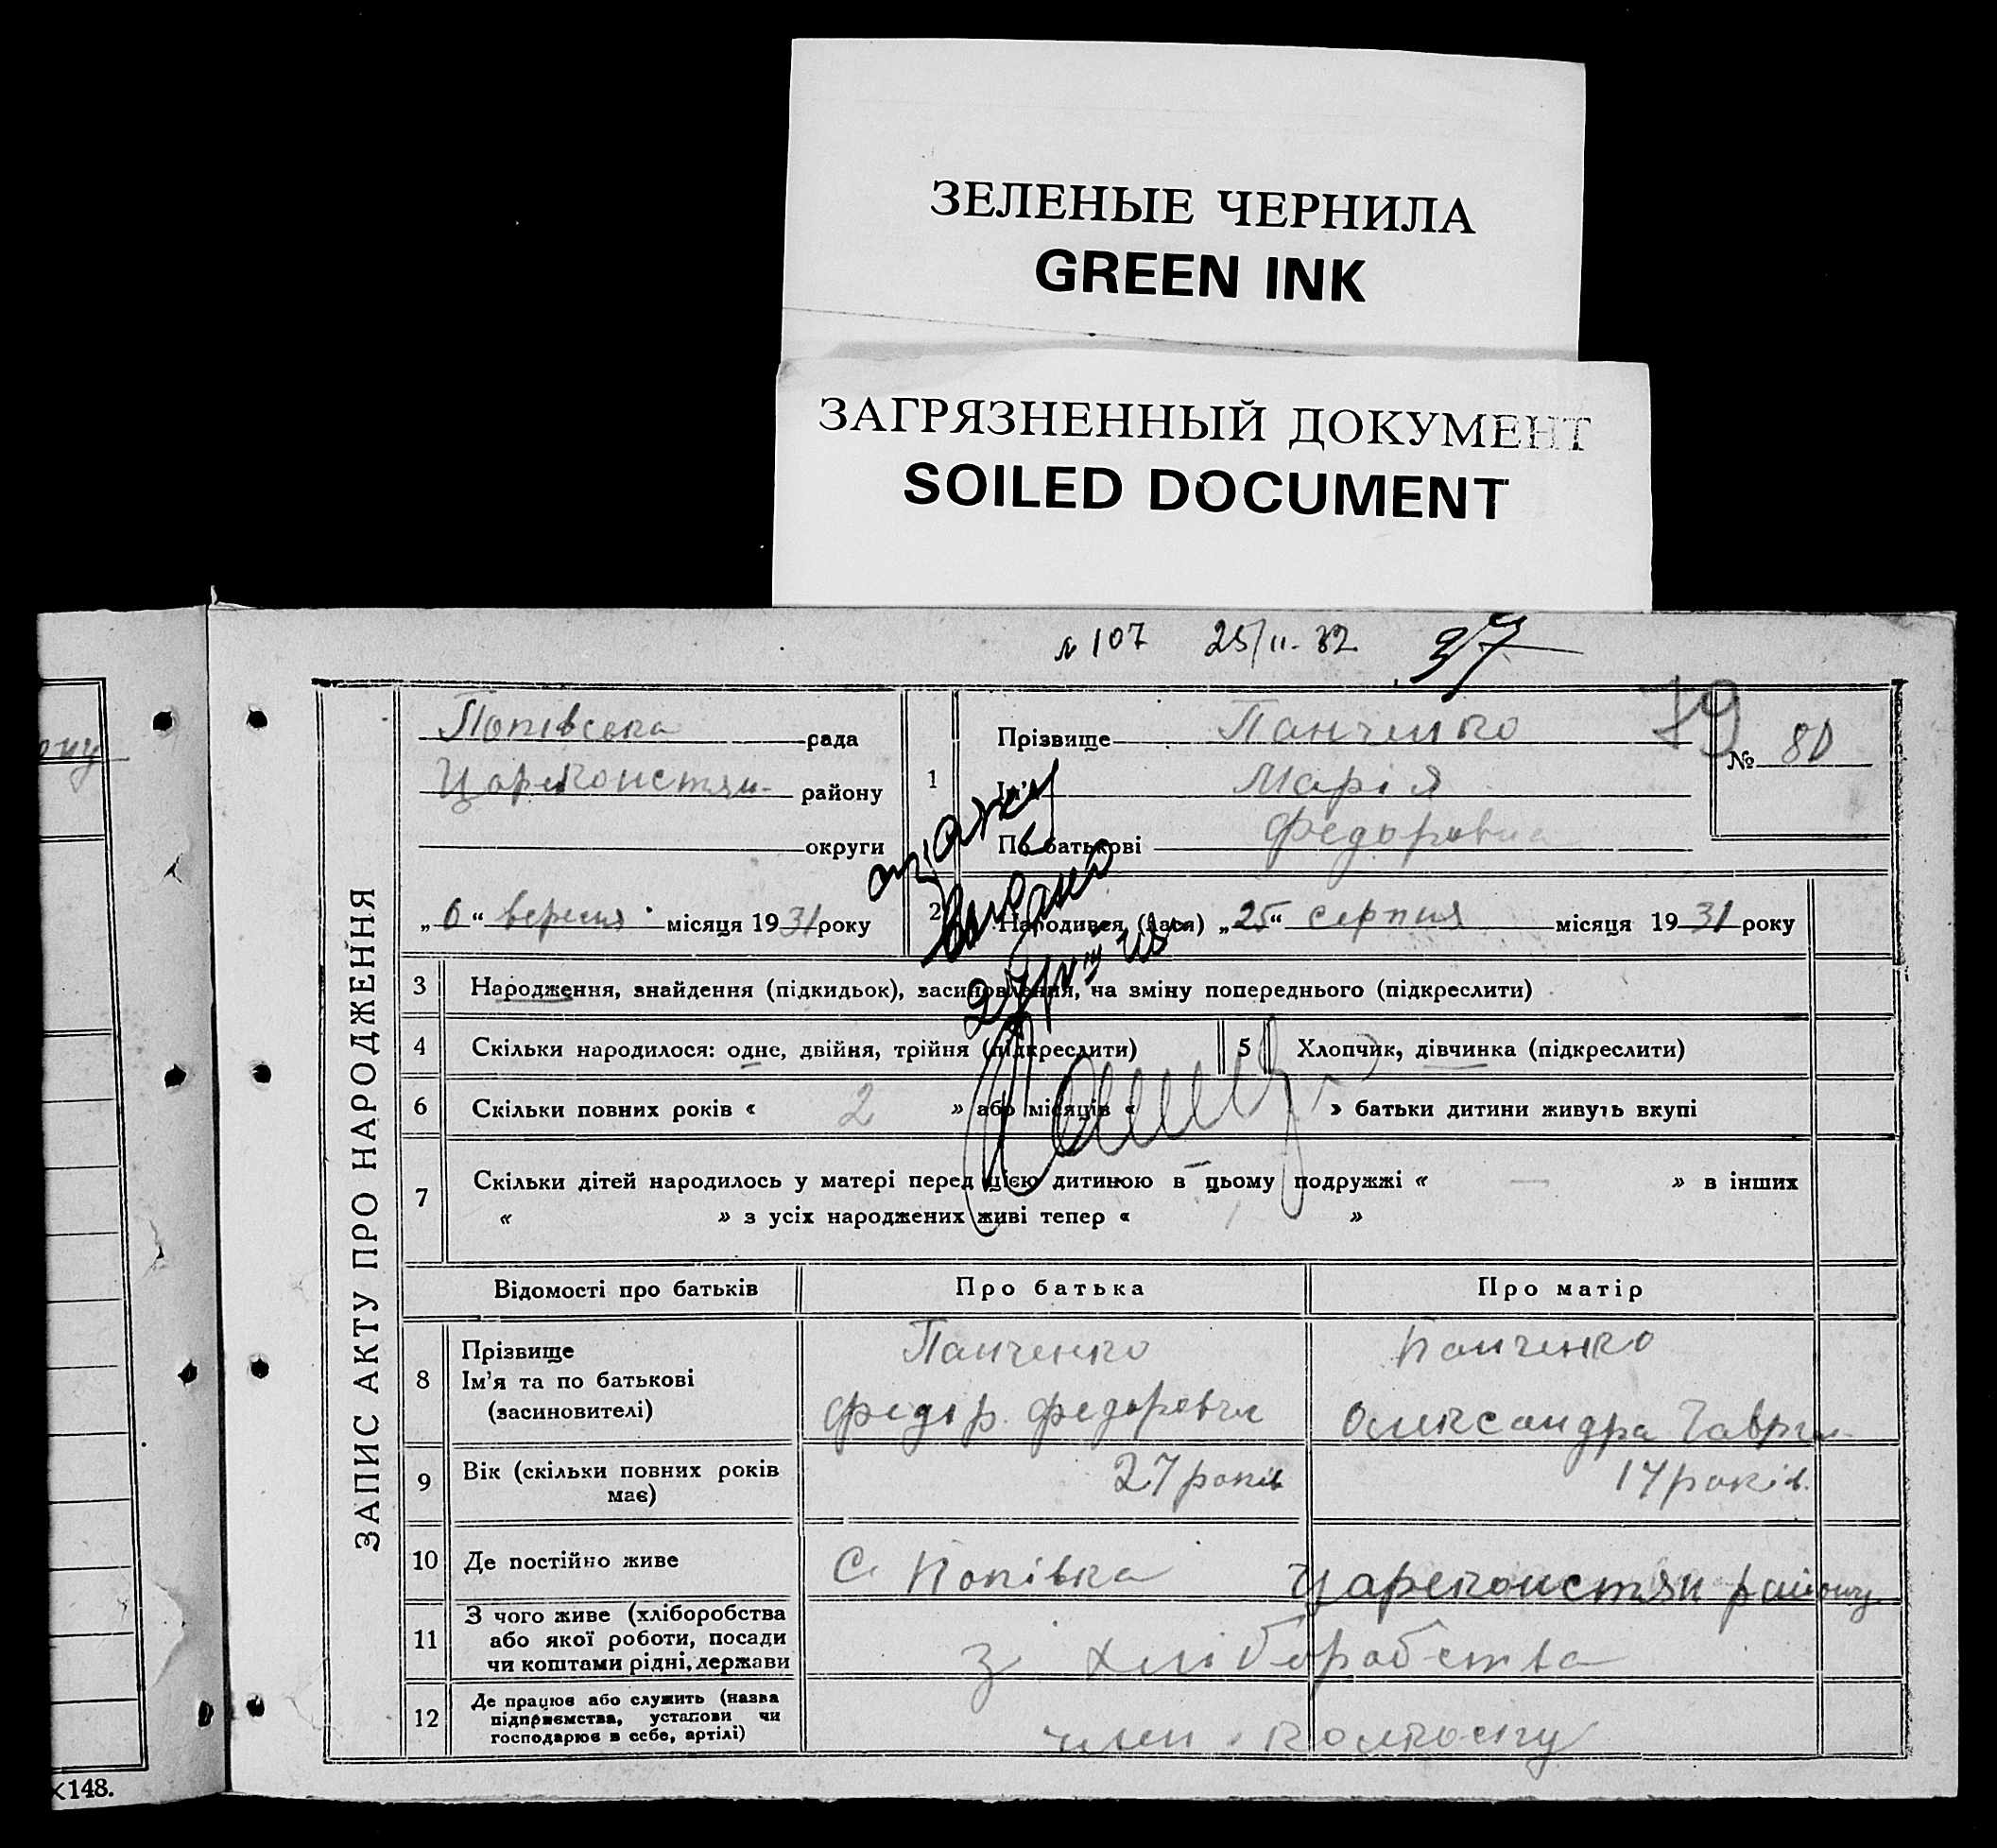 ЗЕЛЕНЫЕ ЧЕРНИЛА
GREEN INK
ЗАГРЯЗНЕННЫЙ ДОКУМЕНТ
SOILED DOCUMENT
№ 107 25/II-32 37
ЗАПИС АКТУ ПРО НАРОДЖЕННЯ
Попівська рада
Цареконстян- району
округи
„6“ вересня місяця 1931 року
1 Прізвище Панченко
Ім'я Марія
По батькові Федоровна
79
№ 80
2 Народився (лася) „25“ серпня місяця 1931 року
3 Народження, знайдення (підкидьок), засиновлення, на зміну попереднього (підкреслити)
4 Скільки народилося: одне, двійня, трійня (підкреслити)
5 Хлопчик, дівчинка (підкреслити)
6 Скільки повних років « 2 » або місяців « » батьки дитини живуть вкупі
7 Скільки дітей народилось у матері перед цією дитиною в цьому подружжі « — » в інших
« » з усіх народжених живі тепер « »
Відомості про батьків Про батька Про матір
8 Прізвище
Ім'я та по батькові
(засиновителі)
Панченко
Федір Федорович
Панченко
Олександра Гаврил-
9 Вік (скільки повних років
має)
27 років
17 років
10 Де постійно живе С. Попівка Цареконстян району
11 З чого живе (хліборобства
або якої роботи, посади
чи коштами рідні, держави
З хліборобства
12 Де працює або служить (назва
підприємства, установи чи
господарює в себе, артілі)
член колгоспу
148.